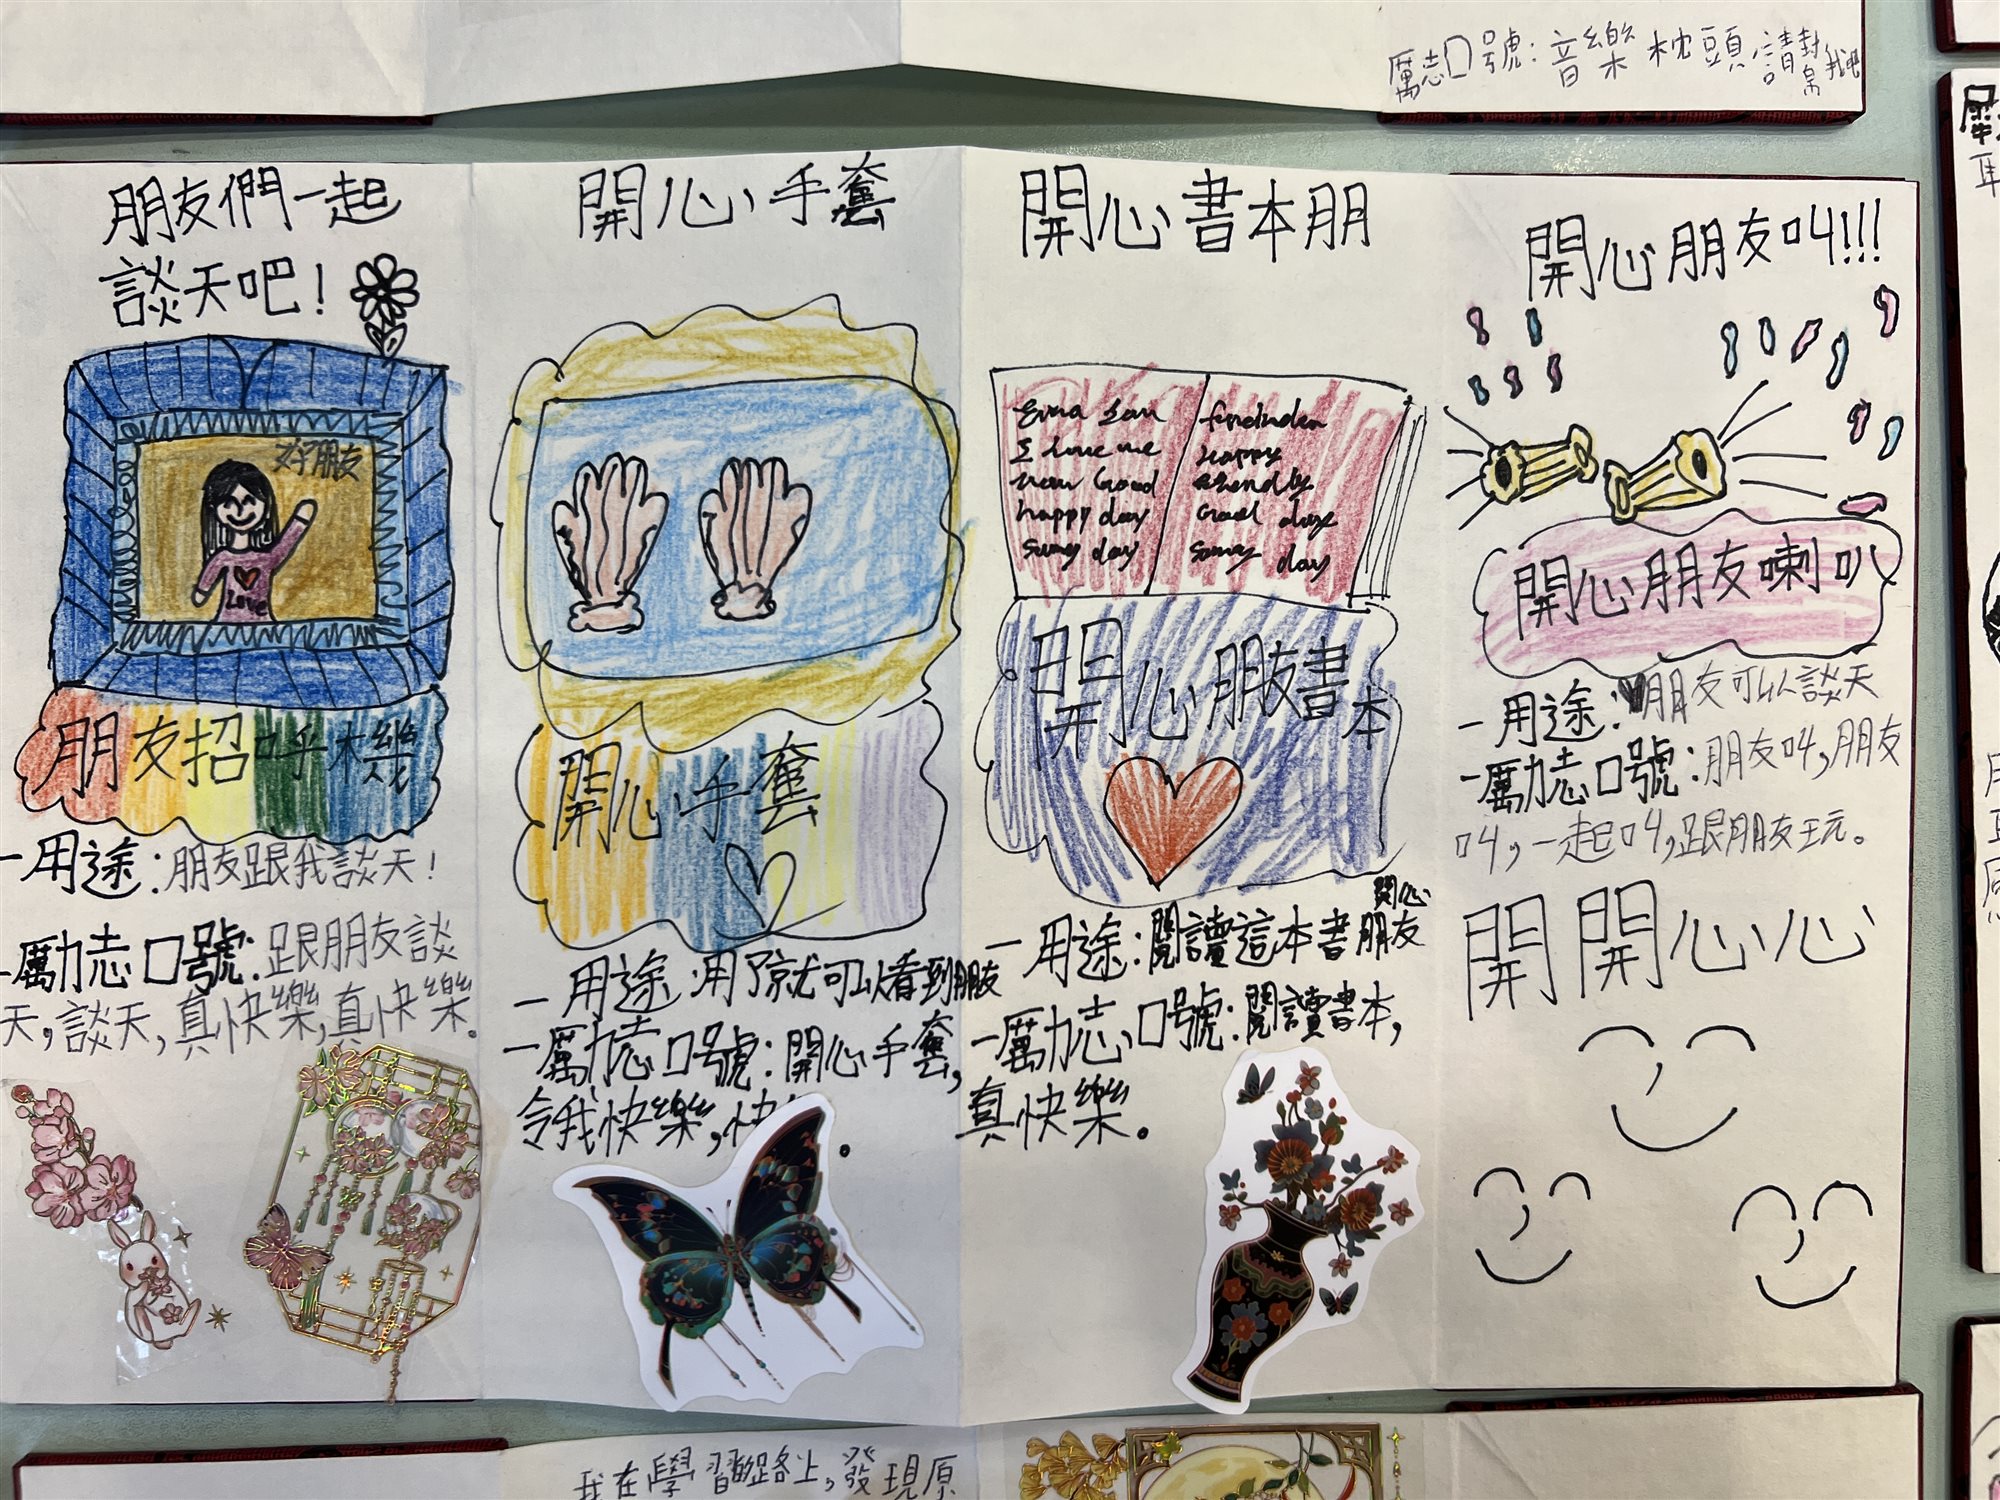 厲志口號:音樂枕頭請封鼻我吧
朋友們一起
談天吧!
好朋友
Love
朋友招呼機
一用途:朋友跟我談天!
一勵志口號:跟朋友談
天,談天,真快樂,真快樂。
開心手套
開心手套
一用途:用了就可以看到朋友
一勵志口號:開心手套,
令我快樂,快
開心書本朋
I love me
Good
happy day
day
happy
day
開心朋友書本
一用途:閱讀這本書開心朋友
一勵志口號:閱讀書本,
真快樂。
開心朋友叫!!!
開心朋友喇叭
一用途:朋友可以談天
一勵志口號:朋友叫,朋友
叫,一起叫,跟朋友玩。
開開心心
我在學習的路上,發現原